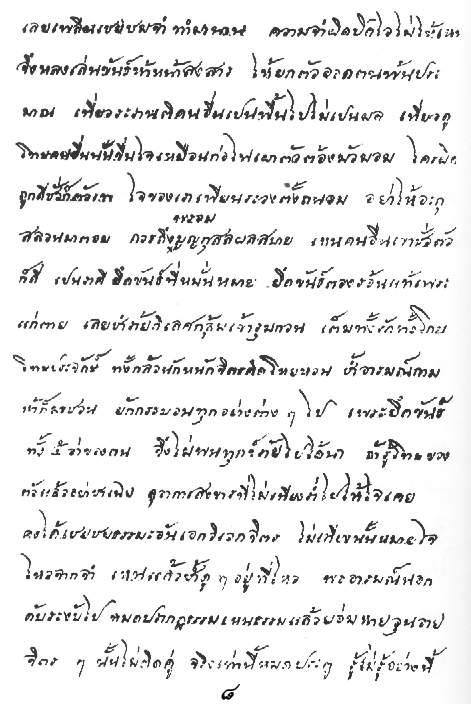 เลยเพลินเชยชมจำ ทำมานาน ความจำผิดปิดไว้ไม่ให้เห็น
จึงหลงเล่นขันธ์ห้าหน้าสงสาร ให้ยกตัวอวดตนพ้นประ
มาณ เที่ยวระรานติคนอื่นเป็นพื้นไปไม่เป็นผล เที่ยวดู
โทษคนอื่นนั้นขื่นใจเหมือนก่อไฟเผาตัวต้องมัวมอม ใครผิด
ถูกดีชั่วก็ตัวเขา ใจของเราเพียรระวงตั้งถนอม อย่าให้อะกุ
สลวนมาตอม ควรถึงพร้อมบุญกุสลผลสบาย เหนคนอื่นเขาชั่วตัว
ก็ดี เปนราคี ยึดขันธ์ที่มั่นหมาย ยึดขันธ์ตองรอ้นแท้เพราะ
แก่ตาย เลยซ้ำร้ายกิเลศกลุ้มเข้ารุมกวน เต็มทั้งรักทั้งโกรธ
โทษประจักษ์ ทั้งกลัวนักหนักจิตรคิดโหยหวน ซ้ำอารมณ์กาม
ห้าก็มาชวน ยกกระบวนทุกอย่างต่าง ๆ ไป เพราะยึดขันธ์
ทั้ง ๕ ว่าของตน จึงไม่พนทุกข์ภัยไปได้นา ถ้ารู้โทษของ
ตัวแล้วอย่าชาเฉย ดูอาการสังขารที่ไม่เที่ยงร่ำไปให้ใจเคย
คงได้เชยชมธรรมะอันเอกวิเวกจิตร ไม่เที่ยงนั้นหมายใจ
ไหวจากจำ เหนแล้วซ้ำดู ๆ อยู่ที่ไหว พออารมณ์นอก
ดับระงับไป หมดปรากฏธรรม เหนธรรมแล้วย่อมหายวุนวาย
จิตร ๆ นั้นไม่ติดคู่ จริงเท่านี้หมดประตู รู้ไม่รู้อย่างนี้
๘